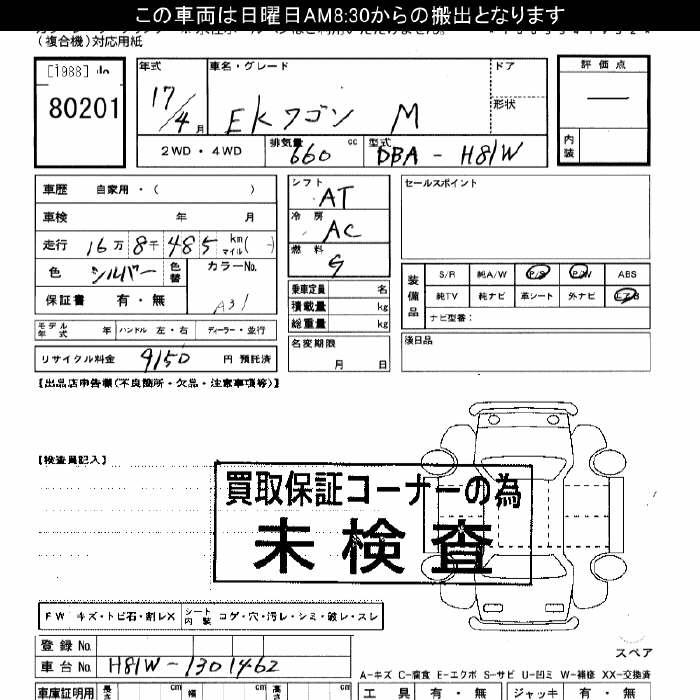 この車両は日曜日AM8:30からの搬出となります
(複合機)対応用紙
[1988]
80201
年式
17/4 月
車名・グレード
EKワゴン M
ドア
形状
評価点
―
内装
2WD・4WD
排気量 660 cc
型式 DBA-H81W
車歴 自家用・( )
車検 年 月
走行 16万 8千 485 km マイル( - )
色 シルバー 色替
カラーNo. A31
保証書 有・無
モデル年式 年 ハンドル 左・右 ディーラー・並行
リサイクル料金 9150 円 預託済
シフト AT
冷房 AC
燃料 G
乗車定員 名
積載量 kg
総重量 kg
名変期限
月 日
セールスポイント
装備品
S/R 純A/W P/S P/W ABS
純TV 純ナビ 革シート 外ナビ エアB
ナビ型番:
後日品
【出品店申告欄(不良箇所・欠品・注意事項等)】
【検査員記入】
買取保証コーナーの為
未検査
FW キズ・トビ石・割レX シート内装 コゲ・穴・汚レ・シミ・破レ・スレ
スペア
登録No.
車台No. H81W-1301462
A-キズ C-腐食 E-エクボ S-サビ U-凹ミ W-補修 XX-交換済
車庫証明用 長さ cm 幅 cm 高さ cm
工具 有・無 ジャッキ 有・無